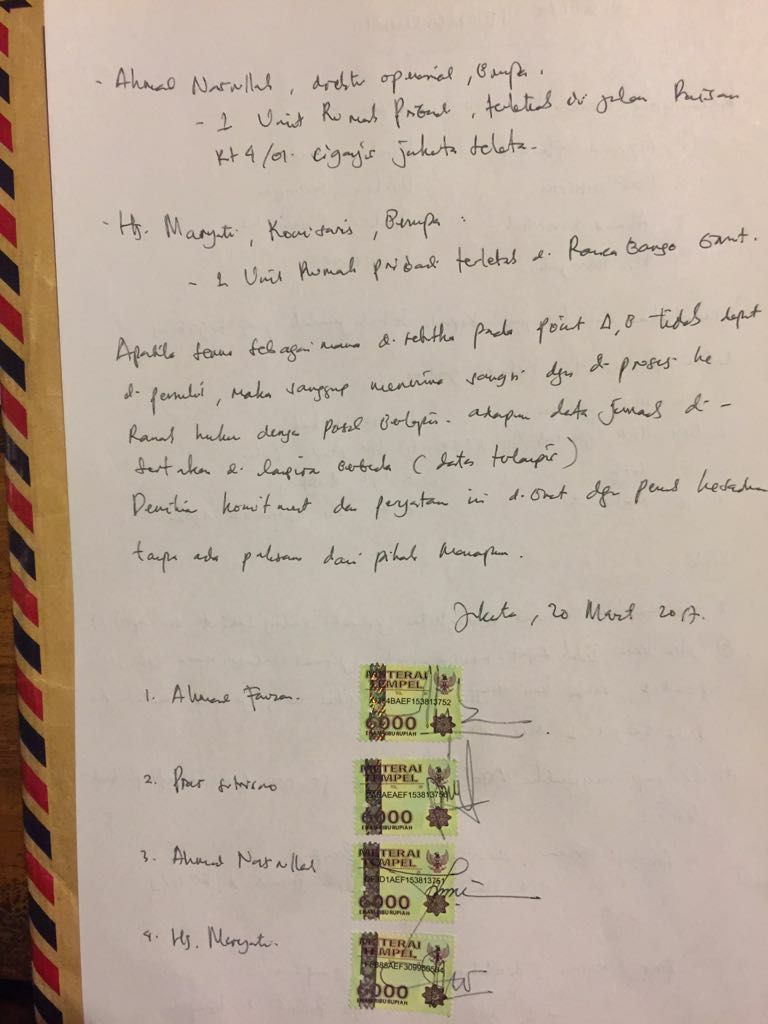 - Ahmad Nasrullah, direktur operasional, Berupa.
- 1 Unit Rumah Pribadi, terletak di jalan
Rt 4/01. ciganjur jakarta selatan.
- Hj. Maryati, Komisaris, Berupa :
- 1 Unit Rumah pribadi terletak di Ranca Bango Garut.
Apabila semua sebagaimana di pada point A, B tidak dapat
di penuhi, maka sanggup menerima sangsi dgn di proses ke
Ranah hukum dengan Pasal Berlapis. adapun data jamaah di -
Sertakan di lampiran berbeda (data terlampir)
Demikian komitment dan pernyataan ini di buat dgn penuh kesadaran
tanpa ada paksaan dari pihak manapun.
Jakarta, 20 Maret 2017.
1. Ahmad Fauzan.
METERAI
TEMPEL
TGL. 20
BAEF153813752
6000
ENAM RIBU RUPIAH
2. sutarsono
METERAI
TEMPEL
6000
ENAM RIBU RUPIAH
3. Ahmad Nasrullah
METERAI
TEMPEL
D1AEF153813751
6000
ENAM RIBU RUPIAH
4. Hj. Maryati.
METERAI
TEMPEL
6000
ENAM RIBU RUPIAH